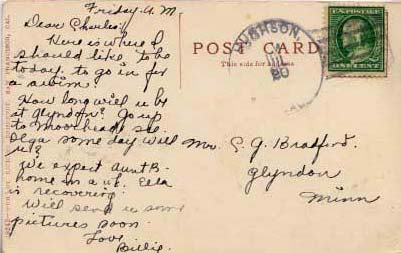 Friday A.M.
Dear Charles:
Here is where I
should like to be
today, to go in for
a swim.
How long will u be
at Glyndon? Go up
to Moorhead & see
Olga some day will
u?
We expect Aunt B-
home in a wk. Ella
is recovering.
Will send u some
pictures soon.
Love,
Billie.
POST CARD
This side for address
HUGHSON,
ONE CENT
Mr. C. G. Bradford.
Glyndon
Minn
SAN FRANCISCO, CAL.